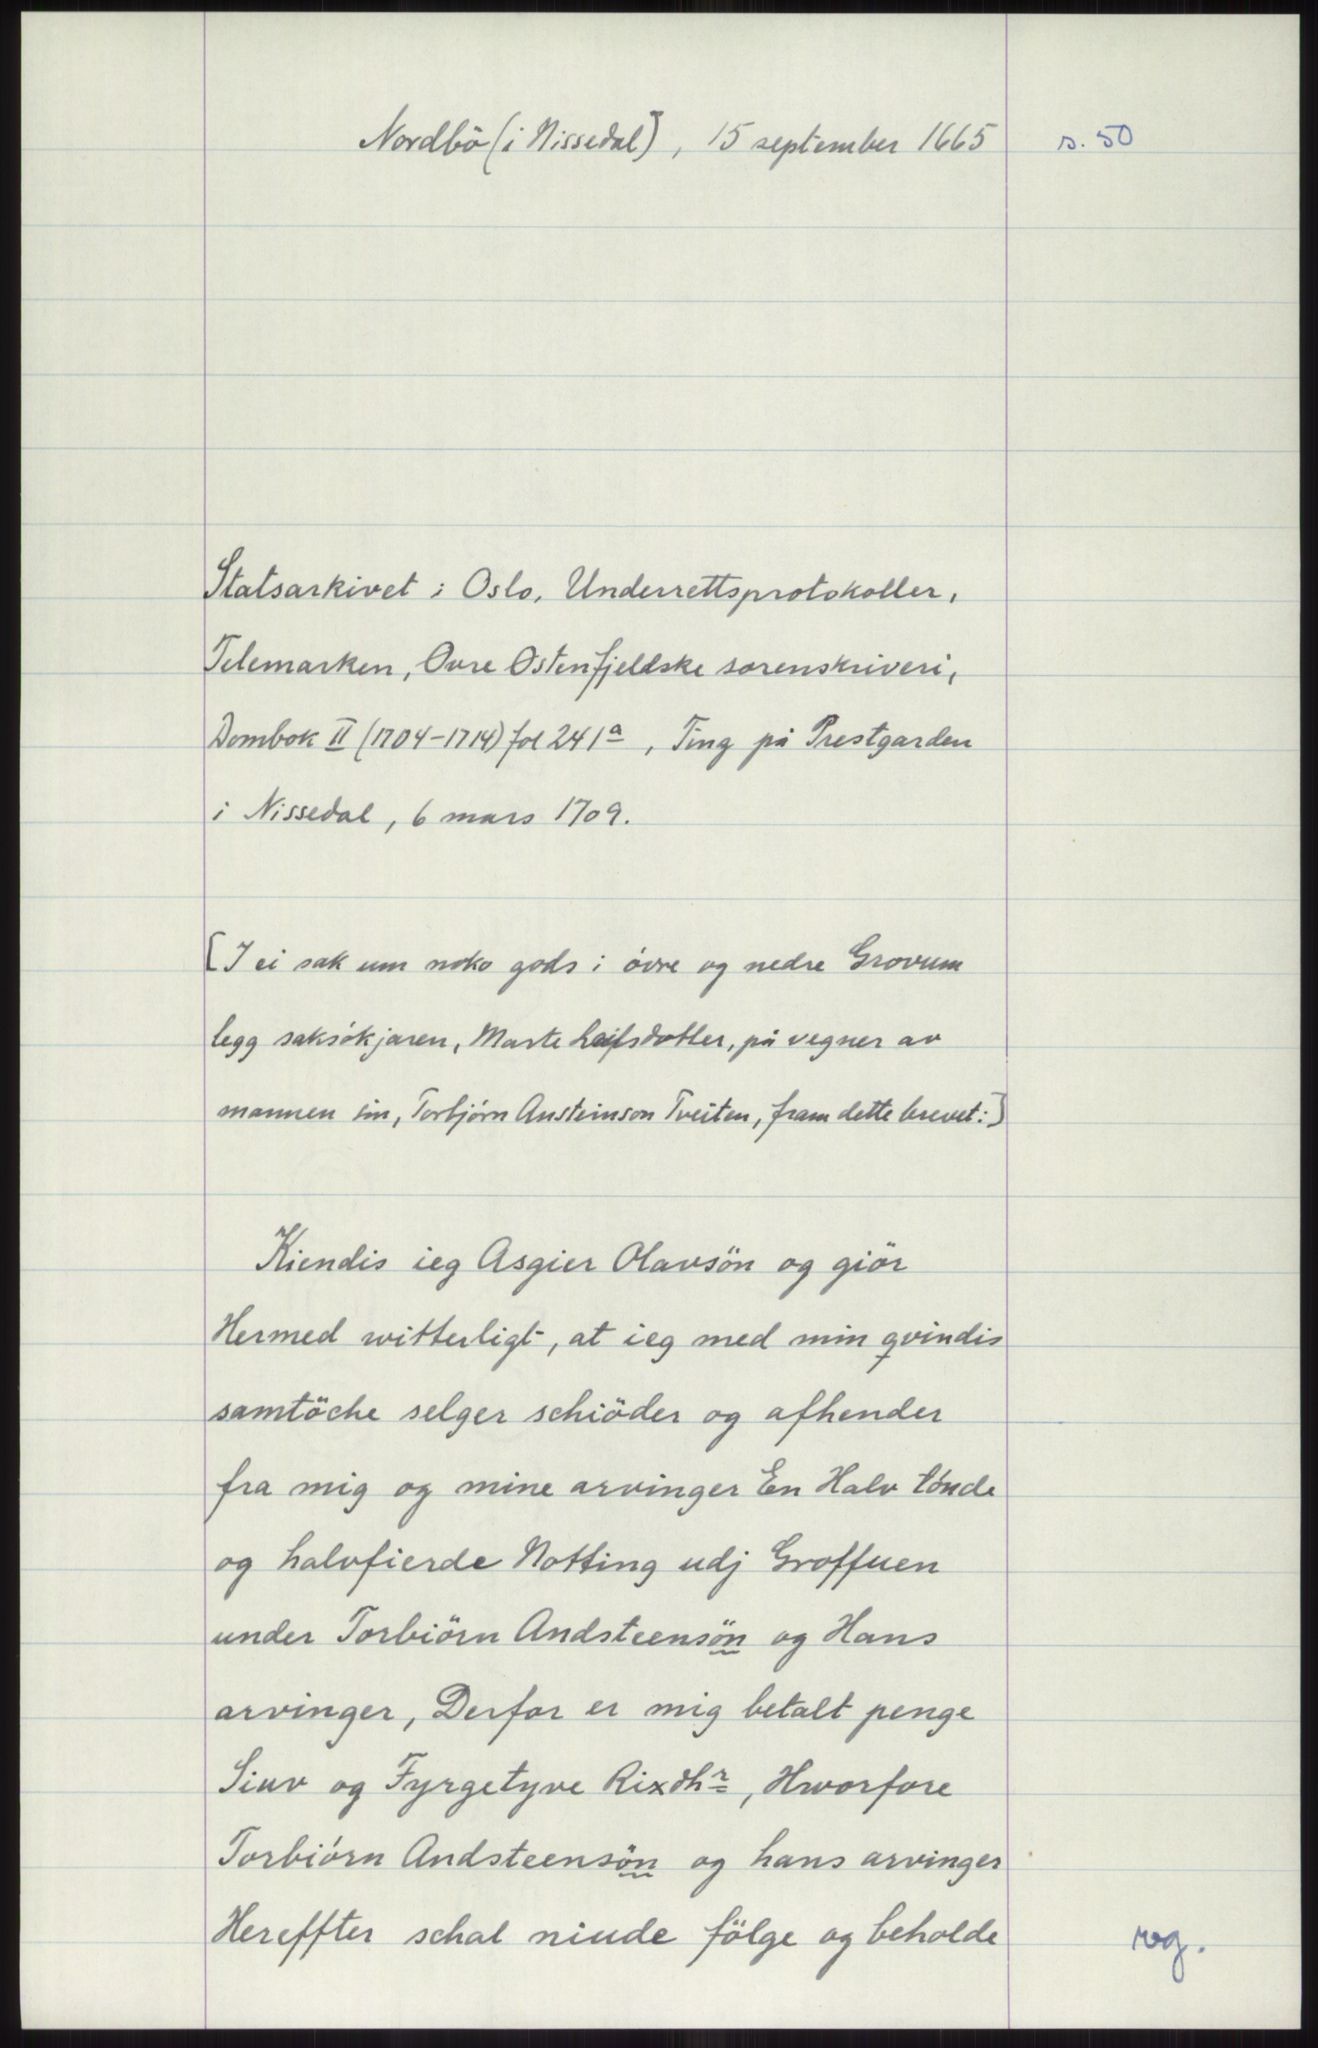 Nordbö (i Nissedal), 15 september 1665
s. 50
Statsarkivet i Oslo, Underrettsprotokoller,
Telemarken, Øvre Østenfjeldske sorenskriveri,
Dombok II (1704-1714) fol 241a, Ting på Prestgarden
i Nissedal, 6 mars 1709.
[I ei sak um noko gods i övre og nedre Grovum
legg saksökjaren, Marte Leifsdotter, på vegner av
mannen sin, Torbjörn Austeinson Tveiten, fram dette brevet:]
Kiendis ieg Asgier Olavsön og giör
Hermed witterligt, at ieg med min qvindis
samtöche selger schiöder og afhender
fra mig og mine arvinger En Halv tönde
og halvfierde Notting udj Groffuen
under Torbiörn Andsteensön og Hans
arvinger, Derfor er mig betalt penge
Siuv og Fyrgetyve Rixdhr, Hworfore
Torbiörn Andsteensön og hans arvinger
Hereffter schal niude fölge og beholde
reg.